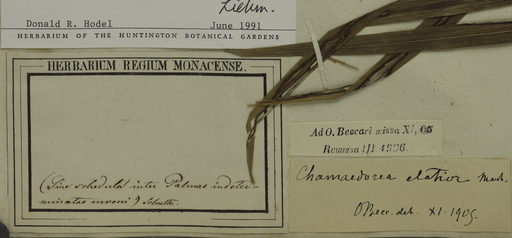 Liebm.
Donald R. Hodel June 1991
HERBARIUM OF THE HUNTINGTON BOTANICAL GARDENS
HERBARIUM REGIUM MONACENSE.
(Sine schedula inter Palmas indeter-
minatas inveni) Schuster.
Ad O. Beccari missa XI, 05
Remissa III. 1906.
Chamaedorea elatior Mart.
O Becc. det. XI. 1905.